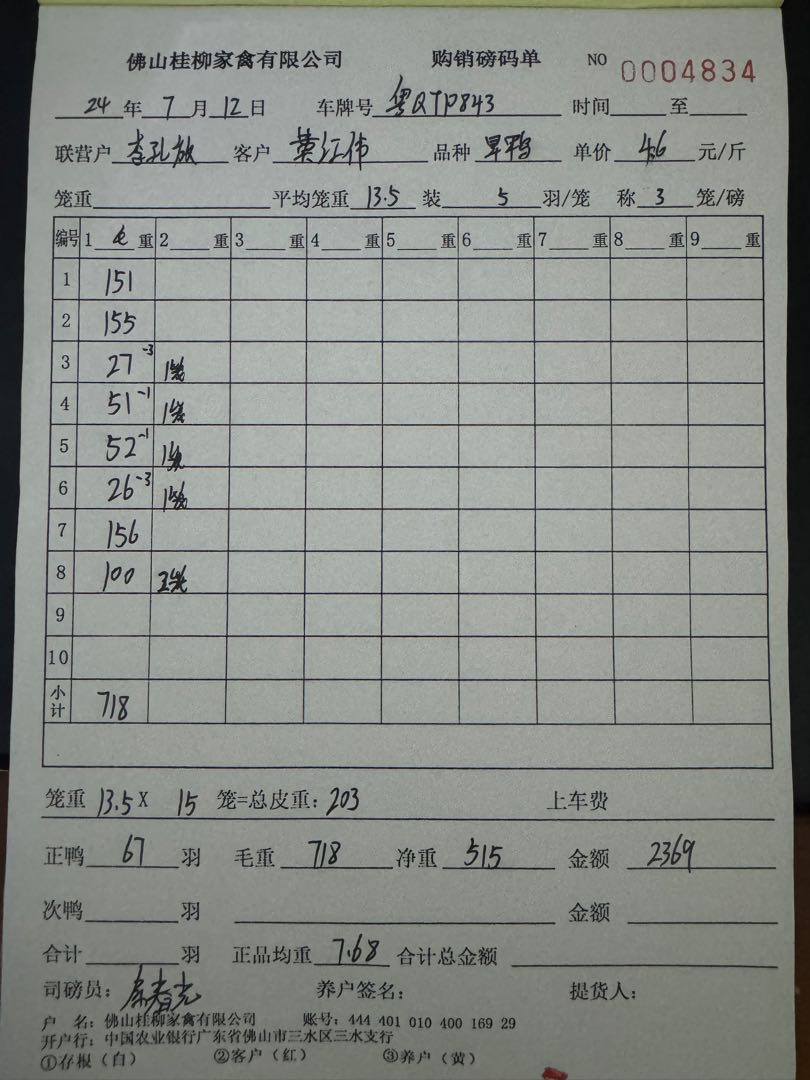 佛山桂柳家禽有限公司 购销磅码单 NO 0004834
24年7月12日 车牌号 粤QTP843 时间 至
联营户 李孔放 客户 黄江伟 品种 旱鸭 单价 4.6 元/斤
笼重 平均笼重 13.5 装 5 羽/笼 称 3 笼/磅
编号 1 毛 重 2 重 3 重 4 重 5 重 6 重 7 重 8 重 9 重
1 151
2 155
3 27 -3 1笼
4 51 -1 1笼
5 52 -1 1笼
6 26 -3 1笼
7 156
8 100 2笼
9
10
小计 718
笼重 13.5 X 15 笼=总皮重: 203 上车费
正鸭 67 羽 毛重 718 净重 515 金额 2369
次鸭 羽 金额
合计 羽 正品均重 7.68 合计总金额
司磅员: 养户签名: 提货人:
户 名: 佛山桂柳家禽有限公司 账号: 444 401 010 400 169 29
开户行: 中国农业银行广东省佛山市三水区三水支行
①存根(白) ②客户(红) ③养户(黄)